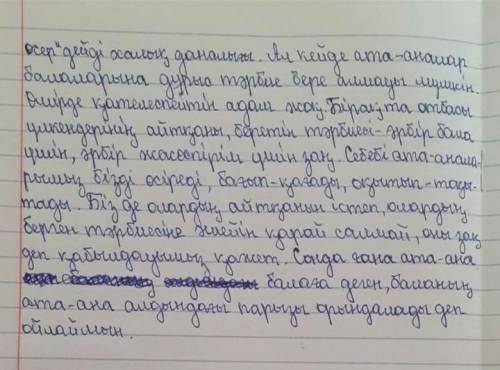 өсер" дейді халық даналығы. Ал кейде ата-аналар
балаларына дұрыс тәрбие бере алмауы мүмкін.
Өмірде қателеспейтін адам жоқ. Бірақ та отбасы
үлкендерінің айтқаны, беретін тәрбиесі - әрбір бала
үшін, әрбір жасөспірім үшін заң. Себебі ата-анала-
рымыз бізді өсіреді, бағып-қағады, оқытып-тоқы-
тады. Біз де олардың айтқанын істеп, олардың
берген тәрбиесіне немқұрай салмай, оны заң
деп қабылдауымыз қажет. Сонда ғана ата-ана
балаға деген, баланың
ата-ана алдындағы парызы орындалады деп
ойлаймын.